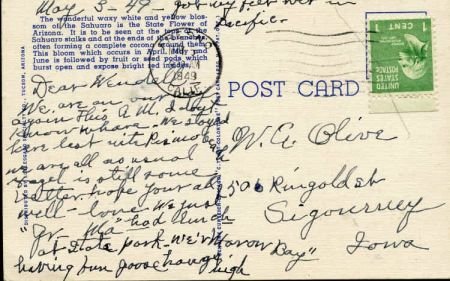 May 3-49- got my feet wet in
Pacific.
The wonderful waxy white and yellow blos-
som of the Sahuaro is the State Flower of
Arizona. It is to be seen at the tops of the
Sahuaro stalks and at the ends of the branches,
often forming a complete corona around them.
This bloom which occurs in April, May and
June is followed by fruit or seed pods which
burst open and expose bright red insides.
TUCSON, ARIZONA
1949
CALIF.
UNITED STATES POSTAGE
1 CENT
POST CARD
Dear Wendell
We are on our
again this A.M. I don't
know where. We stayed
here last nite
we are all as usual
is still some
better. hope your all
well - love. We just
"Ma" had lunch
at State park - We're
having fun goose hang
high
W. G. Olive
501 Ringold st
Sigourney
Iowa